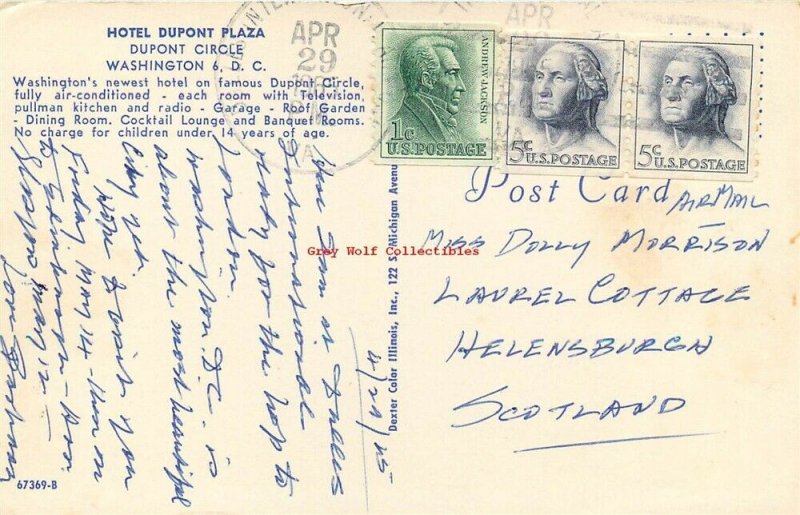 HOTEL DUPONT PLAZA
DUPONT CIRCLE
WASHINGTON 6, D. C.
Washington's newest hotel on famous Dupont Circle,
fully air-conditioned - each room with Television,
pullman kitchen and radio - Garage - Roof Garden
- Dining Room. Cocktail Lounge and Banquet Rooms.
No charge for children under 14 years of age.
APR
29
PM
VA.
ANDREW JACKSON
1c
U.S. POSTAGE
APR
VA
5c
U.S. POSTAGE
5c
U.S. POSTAGE
Post Card
AIR MAIL
Miss Dolly Morrison
Laurel Cottage
Helensburgh
Scotland
4/29/65
am at Dulles
International
ready for the hop to
London.
Washington D.C. is
about the most beautiful
city yet.
Hope to visit you
Friday May 14 - then on
to Edinburgh -
Dexter Color Illinois, Inc., 122 S. Michigan Avenue
Grey Wolf Collectibles
67369-B